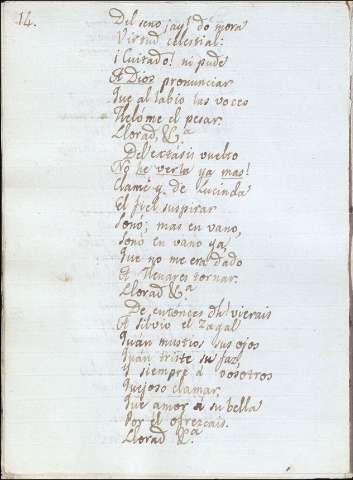 14.
Del seno ¡ay! dó mora
Virtud celestial:
¡Cuitado! ni pude
A Dios pronunciar
Que al labio las voces
Helóme el pesar.
Llorad, &.ª
Del extásis vuelto
No he verla ya mas!
Clamé y de Lucinda
El fiel suspirar
Sonó; mas en vano,
Sonó en vano ya,
Que no me era dado
A Henares tornar.
Llorad &.ª
De entónces Oh! vierais
A Silvio el Zagal
Quán mustios sus ojos
Quán triste su faz
Y siempre á vosotros
Quejoso clamar,
Que amor á su bella
Por el ofrezcais.
Llorad &.ª